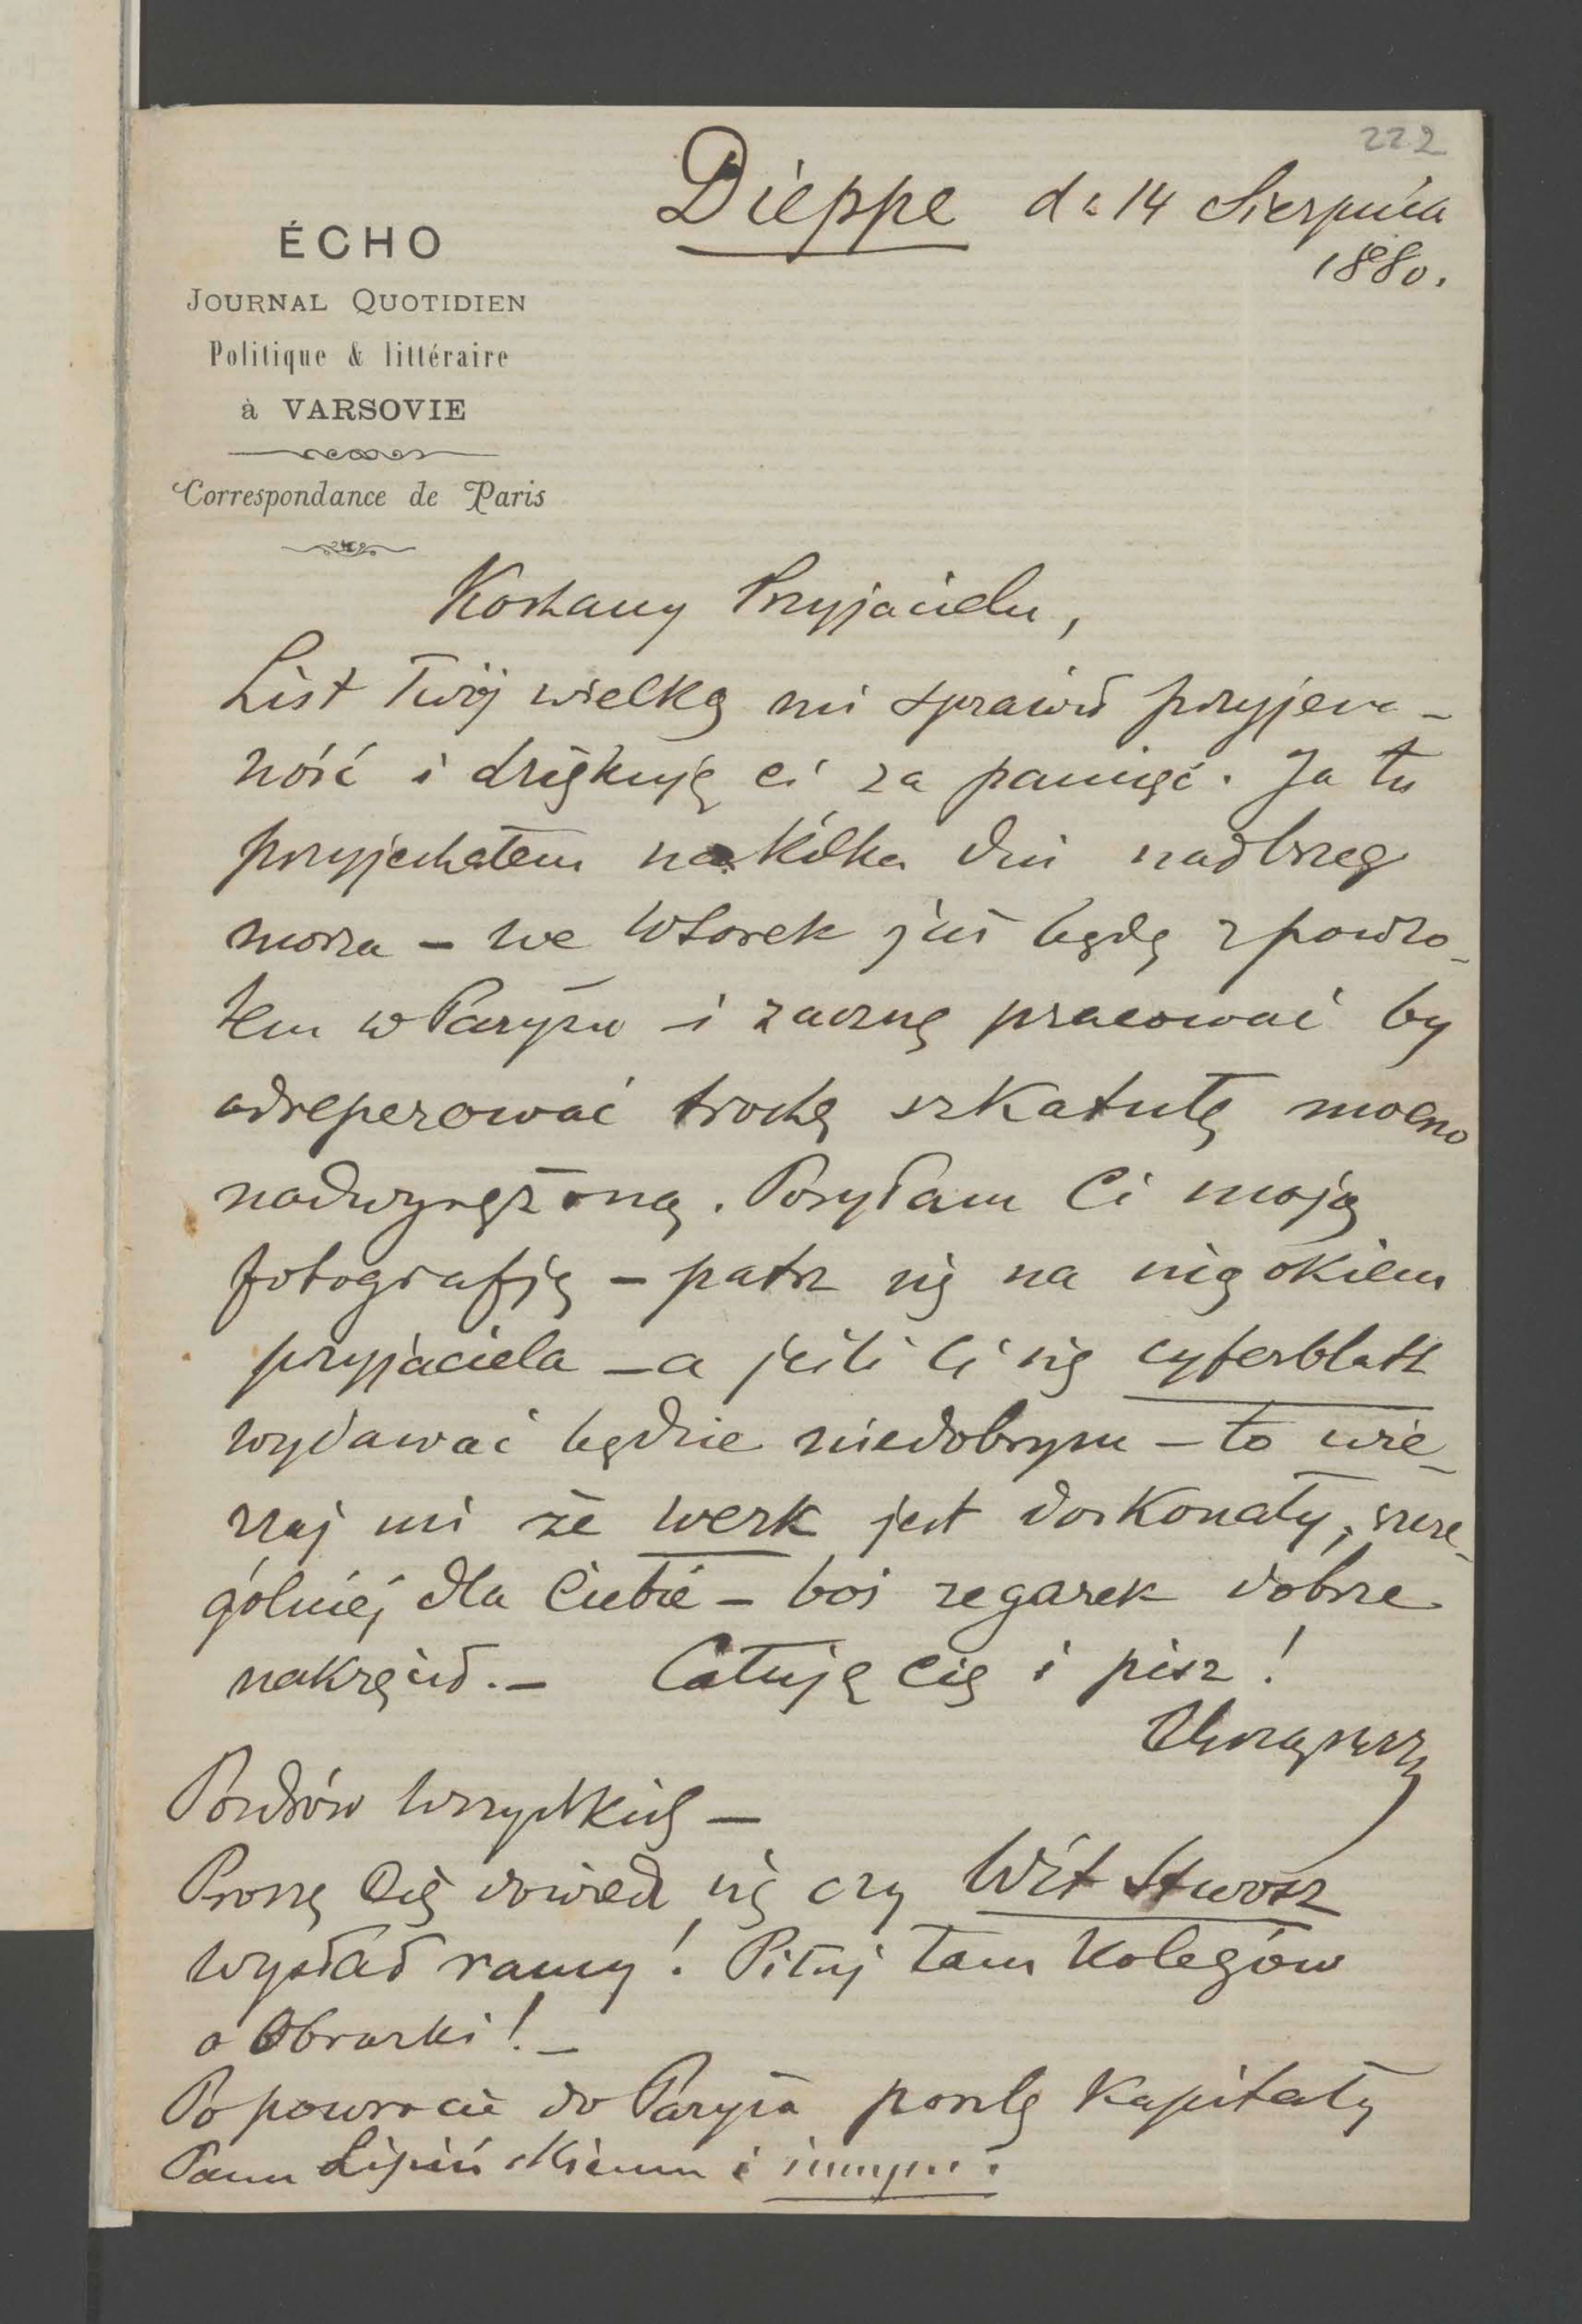 222
Dieppe d. 14 Sierpnia
1880.
ÉCHO
JOURNAL QUOTIDIEN
Politique & littéraire
à VARSOVIE
Correspondance de Paris
Kochany Przyjacielu,
List Twój wielką mi sprawił przyjem-
ność i dziękuję ci za pamięć. Ja tu
przyjechałem na kilka dni nad brzeg
morza – we Wtorek już będę z powro-
tem w Paryżu i zacznę pracować by
odreperować trochę szkatułę mocno
nadwyrężoną. Posyłam Ci moją
fotografję – patrz się na nią okiem
przyjaciela – a jeśli Ci się cyferblatt
wydawać będzie niedobrym – to wie-
rzaj mi że werk jest doskonały, szcze-
gólniej dla Ciebie – boś zegarek dobrze
nakręcił. – Całuję Cię i pisz!
Pozdrów wszystkich –
Proszę Cię dowiedz się czy Wit Stwosz
wysłał ramy! Piłuj tam Kolegów
o Obrazki! –
Po powrocie do Paryża poszlę Kapitały
Panu Lipińskiemu i innym.